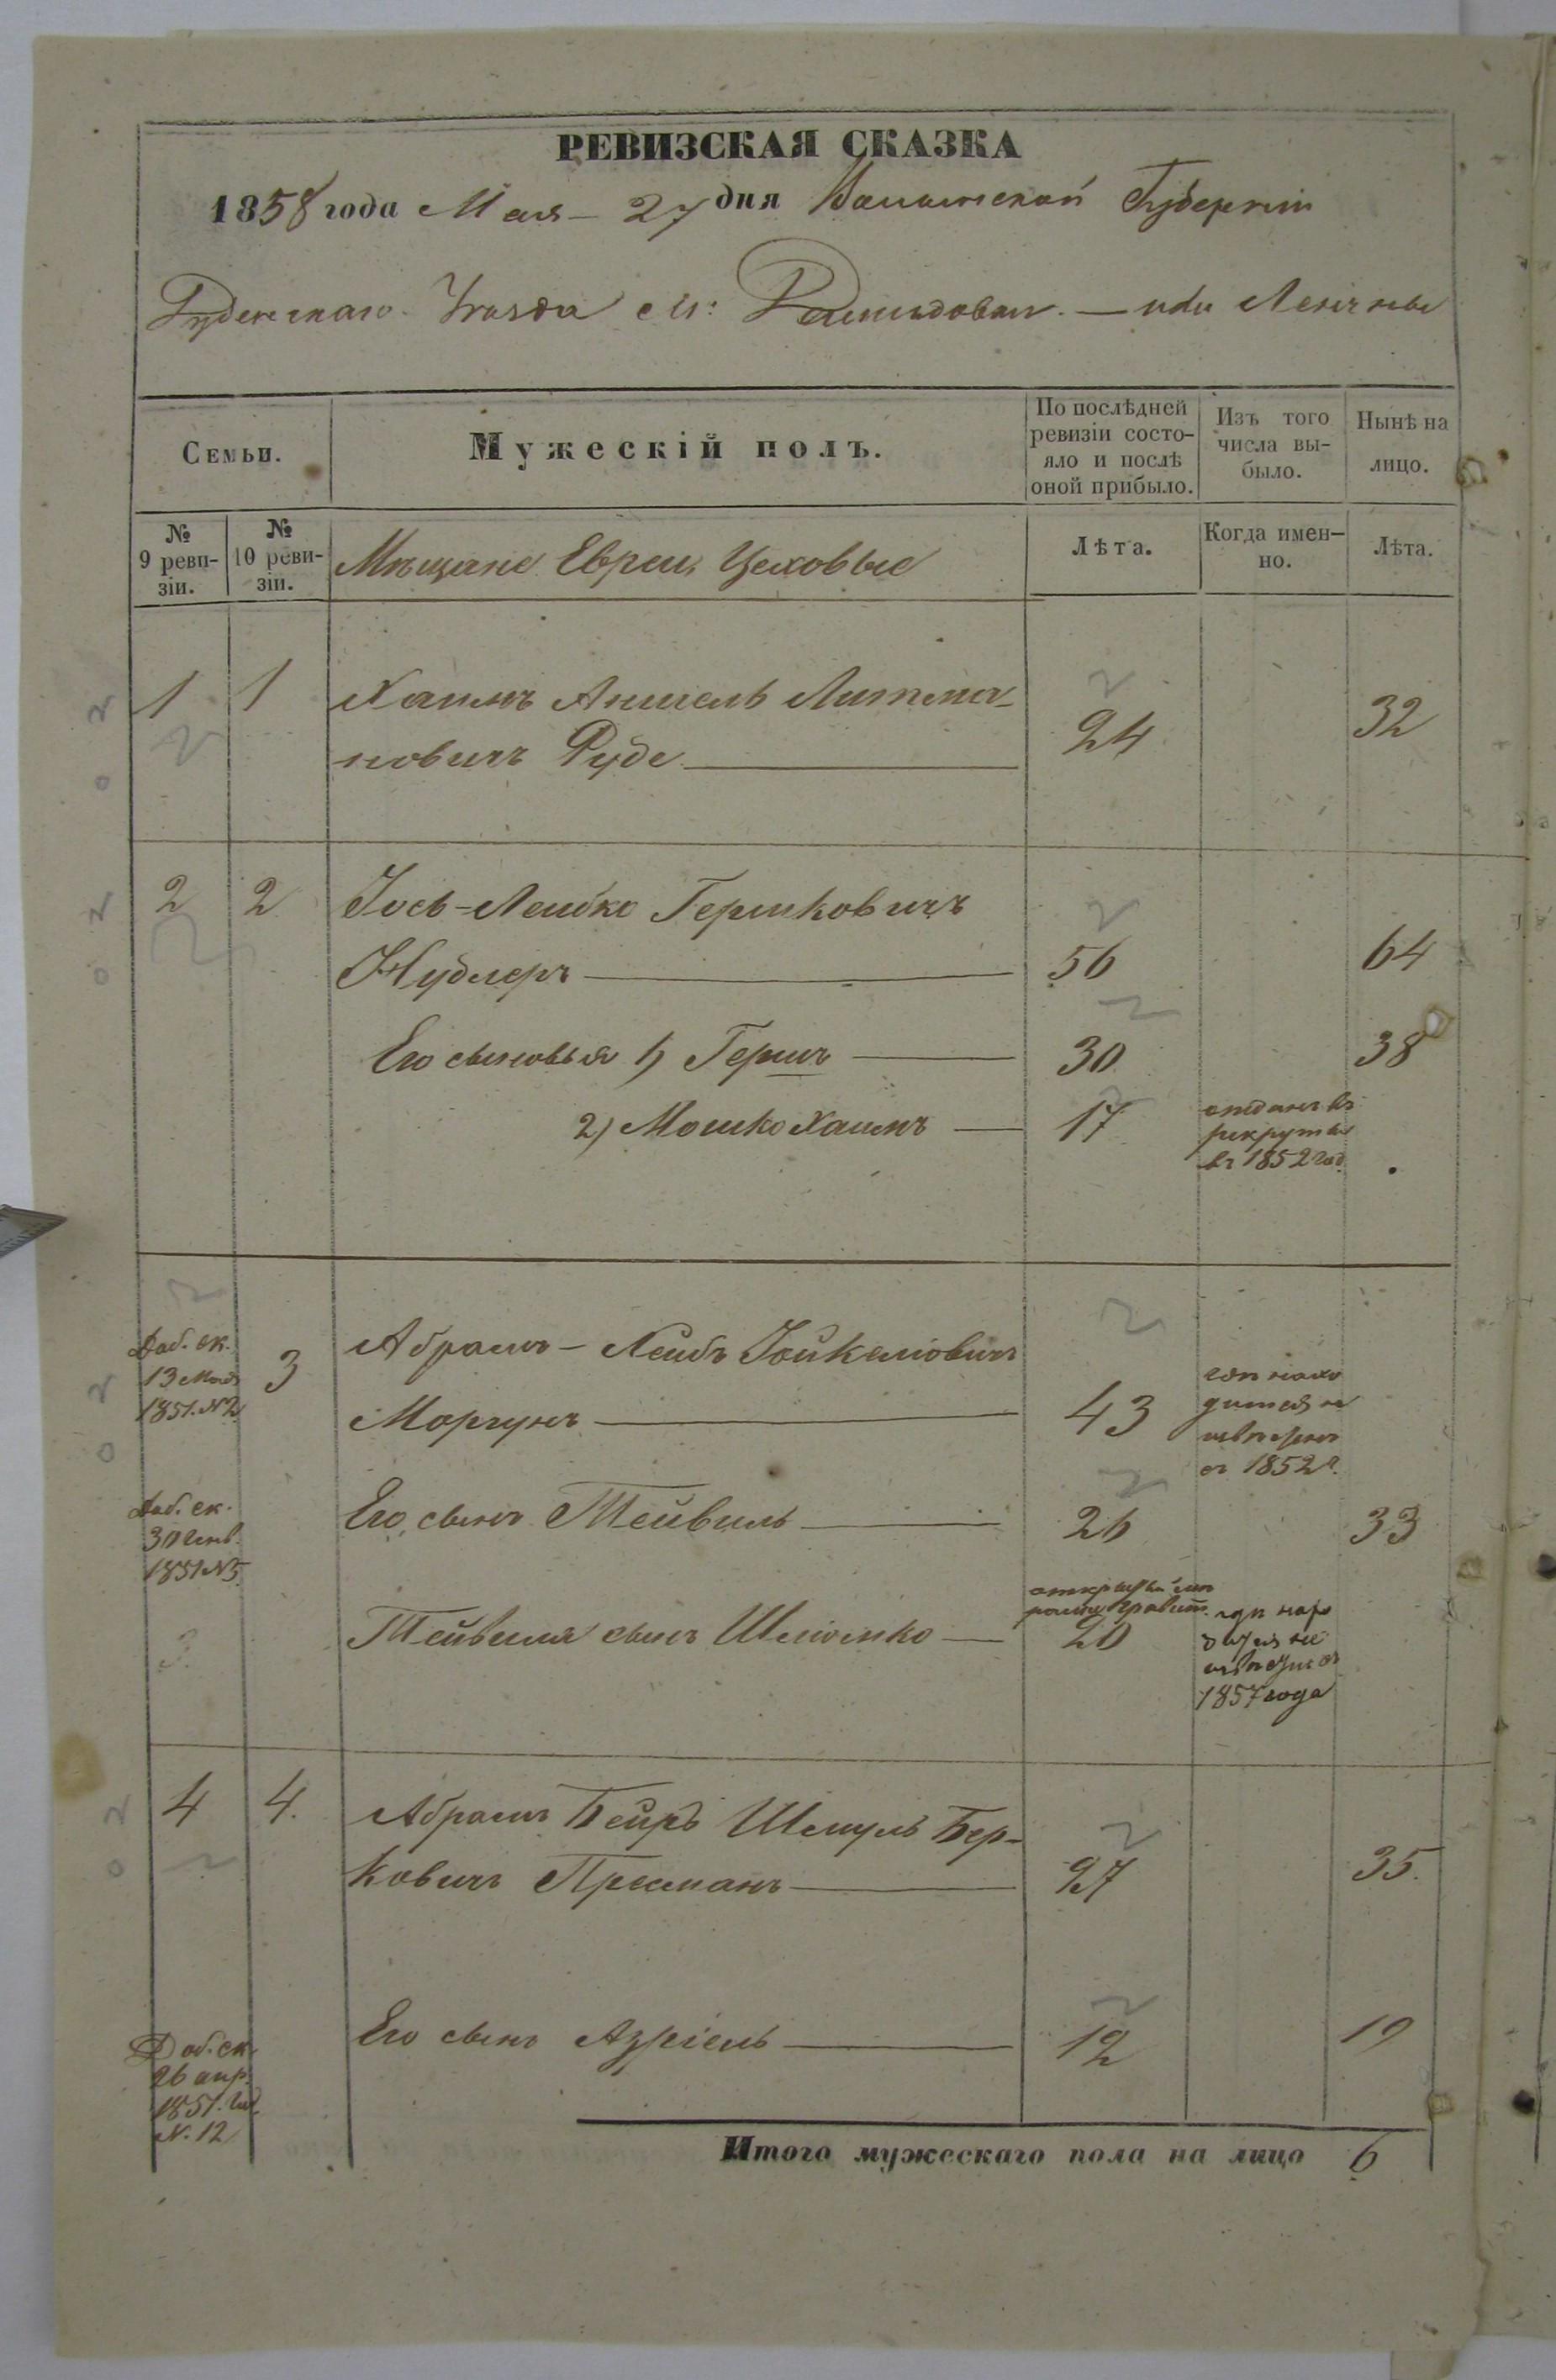 РЕВИЗСКАЯ СКАЗКА
1858 года Мая 27 дня Волынской Губерніи
Уезда М: или
Семьи.
Мужескій полъ.
По послѣдней ревизіи состо-
яло и послѣ
оной прибыло.
Изъ того
числа вы-
было.
Нынѣ на
лицо.
№
9 реви-
зіи.
№
10 реви-
зіи.
Мѣщане Евреи Цеховые
Лѣта.
Когда имен-
но.
Лѣта.
1 1 Хаимъ Аншель Литма-
новичъ Руде 24 32
2 2 Іось-Лейбко Гершковичъ
Нудлеръ 56 64
Его сыновья 1) Гершъ 30 38
2) Мошко Хаимъ 17
отданъ въ
рекруты
въ 1852 год.
Доб. ск.
13 Мая
1851. N2
3
Абрамъ-Лейбъ Іойкелiовичъ
Моргунъ 43
гдѣ нахо
дится не
извѣстно
съ 1852 г.
Доб. ск.
30 Генв.
1851 N5
Его сынъ Тейвель 26 33
Тейвеля сынъ Шліомко 20
гдѣ нахо
дится не
извѣстно съ
1857 года
4 4. Абрамъ Беиръ Шмуль Бер-
ковичъ Пресманъ 27 35.
Доб. ск.
26 апр.
1851. год.
N. 12
Его сынъ Азріель 12 19
Итого мужескаго пола на лицо 6